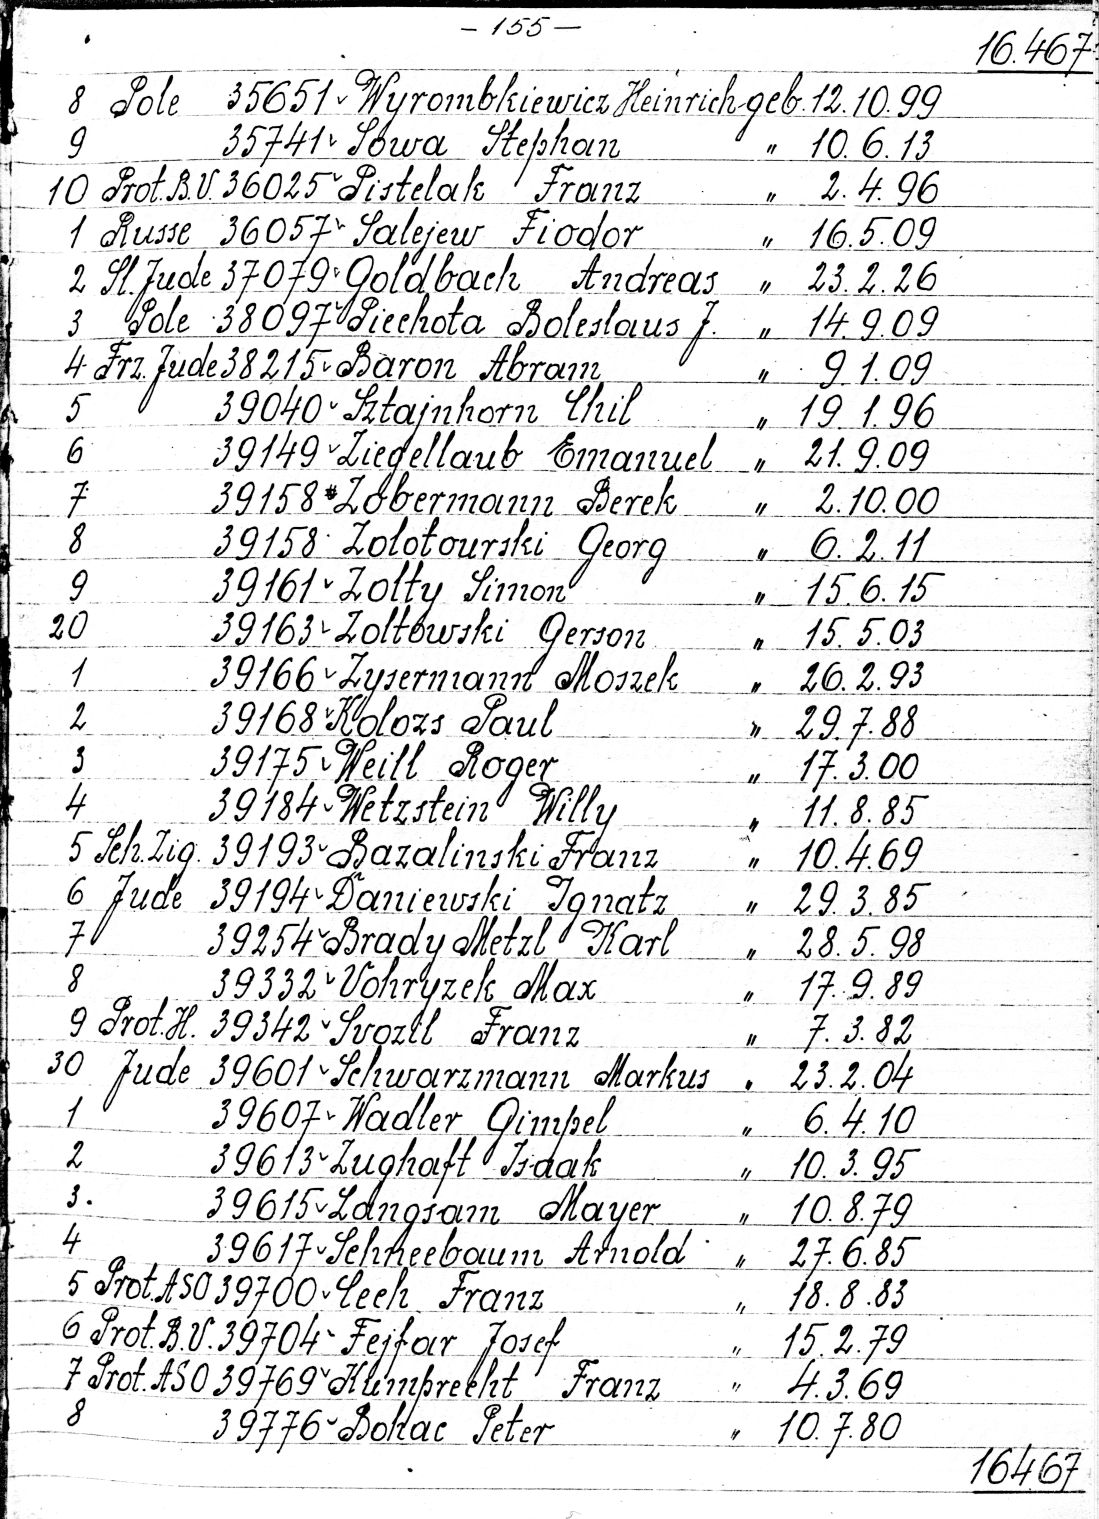 - 155 -
16.467
8 Pole 35651 Wyrombkiewicz Heinrich geb. 12.10.99
9 35741 Sowa Stephan " 10.6.13
10 Prot.B.V. 36025 Pistelak Franz " 2.4.96
1 Russe 36057 Salejew Fiodor " 16.5.09
2 Sl.Jude 37079 Goldbach Andreas " 23.2.26
3 Pole 38097 Piechota Boleslaus J. " 14.9.09
4 Frz.Jude 38215 Baron Abram " 9.1.09
5 39040 Sztajnhorn Chil " 19.1.96
6 39149 Ziegellaub Emanuel " 21.9.09
7 39158 * Zobermann Berek " 2.10.00
8 39158 Zolotourski Georg " 6.2.11
9 39161 Zolty Simon " 15.6.15
20 39163 Zoltowski Gerson " 15.5.03
1 39166 Zysermann Moszek " 26.2.93
2 39168 Kolozs Paul " 29.7.88
3 39175 Weill Roger " 17.3.00
4 39184 Wetzstein Willy " 11.8.85
5 Sch.Zig. 39193 Bazalinski Franz " 10.4.69
6 Jude 39194 Daniewski Ignatz " 29.3.85
7 39254 Brady Metzl Karl " 28.5.98
8 39332 Vohryzek Max " 17.9.89
9 Prot.H. 39342 Svozil Franz " 7.3.82
30 Jude 39601 Schwarzmann Markus " 23.2.04
1 39607 Wadler Gimpel " 6.4.10
2 39613 Zughaft Isaak " 10.3.95
3. 39615 Langsam Mayer " 10.8.79
4 39617 Schneebaum Arnold " 27.6.85
5 Prot.ASO 39700 Cech Franz " 18.8.83
6 Prot.B.V. 39704 Fejfar Josef " 15.2.79
7 Prot.ASO 39769 Kumprecht Franz " 4.3.69
8 39776 Bohac Peter " 10.7.80
16467